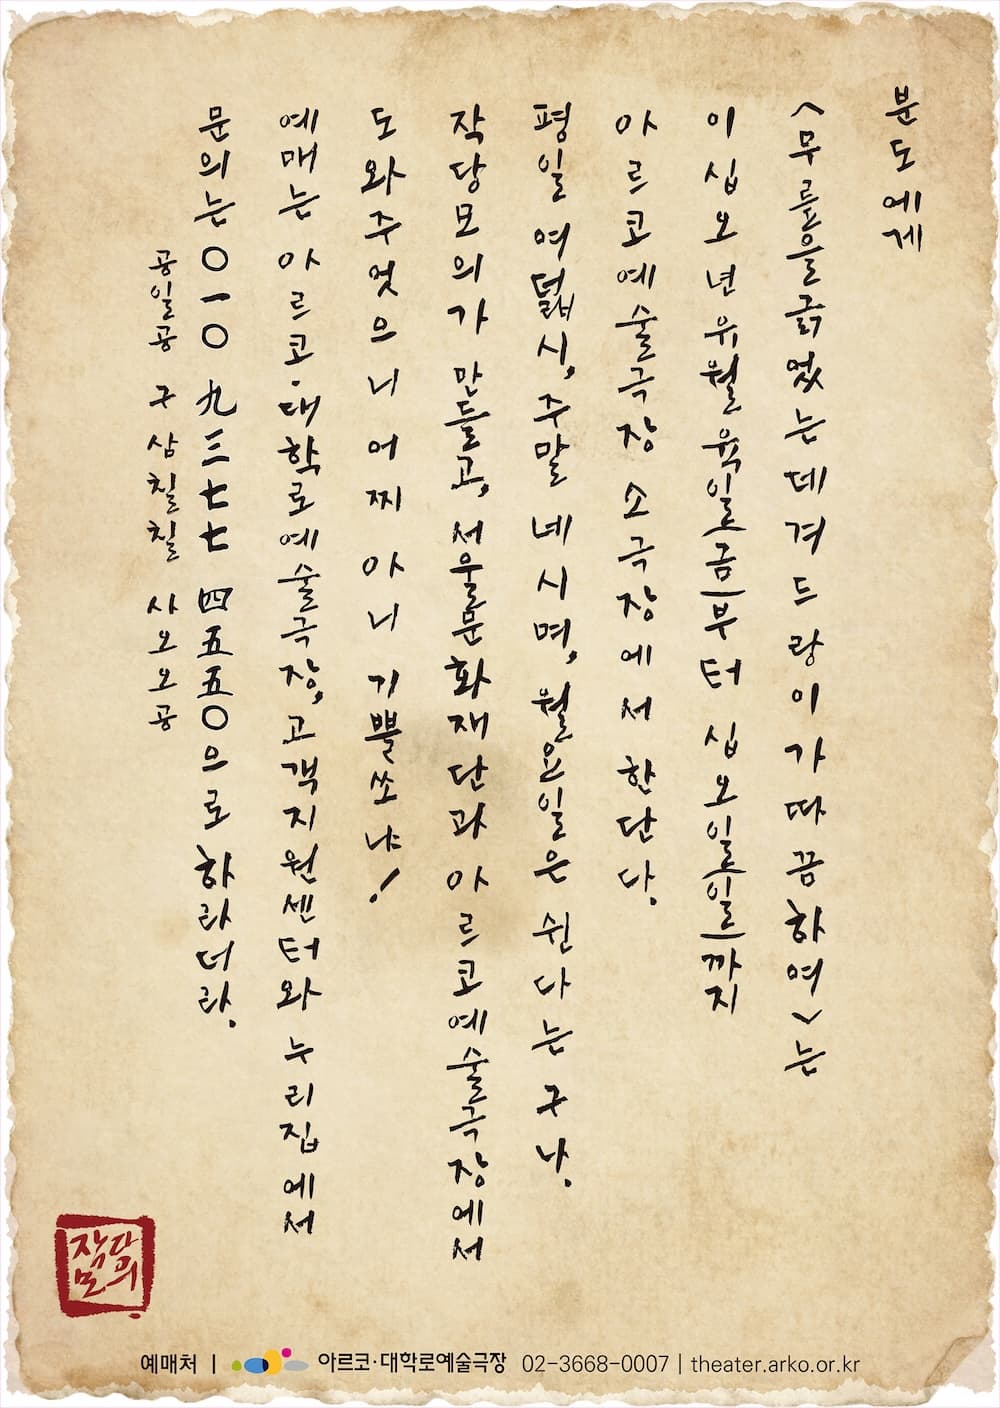 분도에게
<무릎을긁었는데겨드랑이가따끔하여>는
이십오년유월 육일(금)부터 십오일(일)까지
아르코예술극장 소극장에서 한단다.
평일 여덟시, 주말 네시며, 월요일은 쉰다는구나.
작당모의가 만들고, 서울문화재단과 아르코예술극장에서
도와주었으니 어찌 아니 기쁠쏘냐!
예매는 아르코·대학로예술극장, 고객지원센터와 누리집에서
문의는 〇一〇 九三七七 四五五〇으로 하라더라.
공일공 구삼칠칠 사오오공
작당모의
예매처 | 아르코·대학로예술극장 02-3668-0007 | theater.arko.or.kr